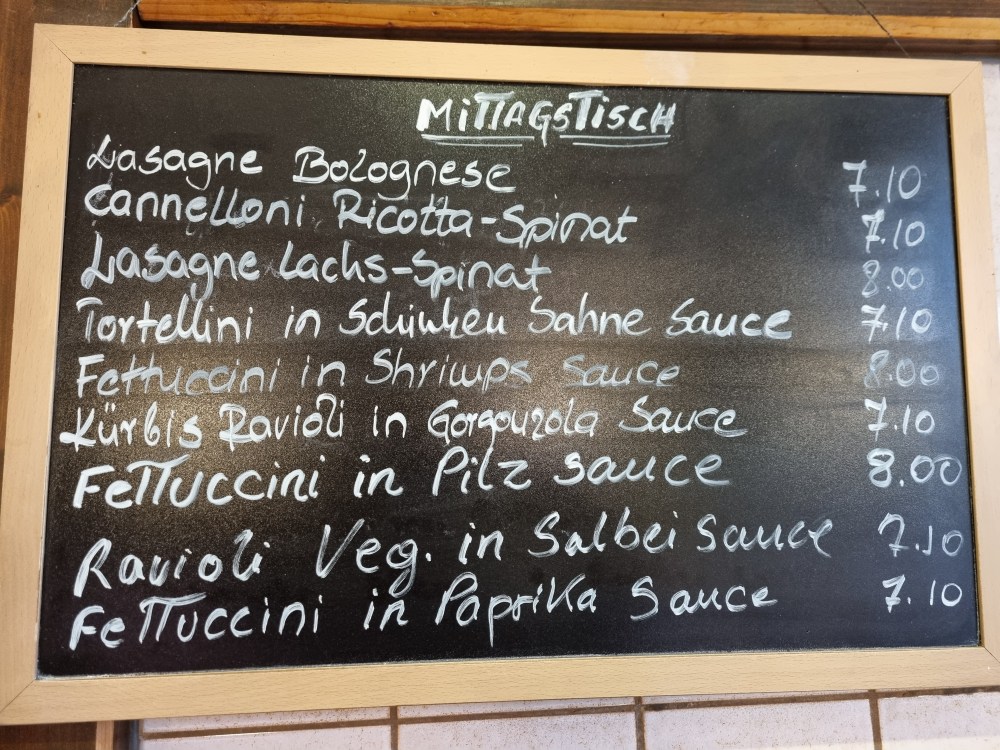 MITTAGSTISCH
Lasagne Bolognese 7.10
Cannelloni Ricotta-Spinat 7.10
Lasagne Lachs-Spinat 8.00
Tortellini in Schinken Sahne Sauce 7.10
Fettuccini in Shrimps Sauce 8.00
Kürbis Ravioli in Gorgonzola Sauce 7.10
Fettuccini in Pilz sauce 8.00
Ravioli Veg. in Salbei Sauce 7.10
Fettuccini in Paprika Sauce 7.10